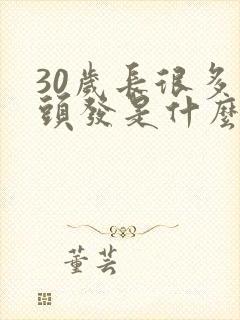 30歲長很多
頭發是什麼
董芸